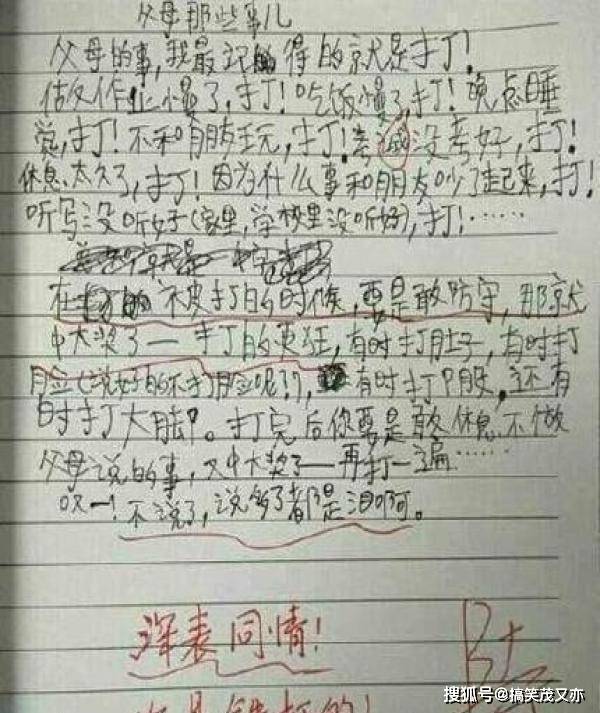 父母那些事儿
父母的事,我最记得的就是打!
作业慢了,打!吃饭慢了,打!晚点睡
觉,打!不和朋友玩,打!考试没考好,打!
休息太久了,打!因为什么事和朋友吵了起来,打!
听写没听好(家里,学校里没听好),打!……
在被打的时候,要是敢防守,那就
中大奖了—打的更狂,有时打肚子,有时打
脸(说好的不打脸呢?),有时打屁股,还有
时打大腿。打完后你要是敢休息不做
父母说的事,又中大奖了—再打一遍……
哎—!不说了,说多了都是泪啊。
深表同情!
B+
搜狐号@搞笑茂又亦